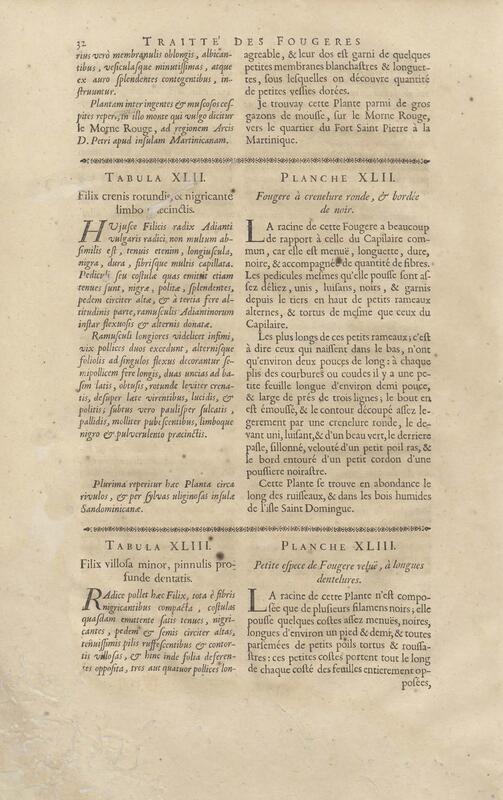 32 TRAITTE' DES FOUGERES
rius verò membranulis oblongis, albican-
tibus, vesiculasque minutissimas, atque
ex auro splendentes contegentibus, in-
struuntur.
Plantam inter ingentes & muscosos ces-
pites reperi, in illo monte qui vulgo dicitur
le Morne Rouge, ad regionem Arcis
D. Petri apud insulam Martinicanam.
agreable, & leur dos est garni de quelques
petites membranes blanchastres & longuet-
tes, sous lesquelles on découvre quantité
de petites vessies dorées.
Je trouvay cette Plante parmi de gros
gazons de mousse, sur le Morne Rouge,
vers le quartier du Fort Saint Pierre à la
Martinique.
TABULA XLII.
Filix crenis rotundis, & nigricante
limbo præcinctis.
HUjusce Filicis radix Adianti
vulgaris radici, non multum ab-
similis est, tenuis etenim, longiuscula,
nigra, dura, fibrisque multis capillata.
Pediculi seu costulæ quas emittit etiam
tenues sunt, nigræ, politæ, splendentes,
pedem circiter altæ, & à tertia fere al-
titudinis parte, ramusculis Adiantinorum
instar flexuosis & alternis donatæ.
Ramusculi longiores videlicet infimi,
vix pollices duos excedunt, alternisque
foliolis ad singulos flexus decorantur se-
mipollicem fere longis, duas uncias ad ba-
sim latis, obtusis, rotunde leviter crena-
tis, desuper late virentibus, lucidis, &
politis; subtus vero paulisper sulcatis,
pallidis, molliter pubescentibus, limboque
nigro & pulverulento præcinctis.
Plurima reperitur hæc Planta circa
rivulos, & per sylvas uliginosas insulæ
Sandominicanæ.
PLANCHE XLII.
Fougere à crenelure ronde, & bordée
de noir.
LA racine de cette Fougere a beaucoup
de rapport à celle du Capilaire com-
mun, car elle est menuë, longuette, dure,
noire, & accompagnée de quantité de fibres.
Les pedicules mesmes qu'elle pousse sont as-
sez déliez, unis, luisans, noirs, & garnis
depuis le tiers en haut de petits rameaux
alternes, & tortus de mesme que ceux du
Capilaire.
Les plus longs de ces petits rameaux; c'est
à dire ceux qui naissent dans le bas, n'ont
qu'environ deux pouces de long: à chaque
plis des courbures ou coudes il y a une pe-
tite feuille longue d'environ demi pouce,
& large de prés de trois lignes; le bout en
est émousse, & le contour découpé assez le-
gerement par une crenelure ronde, le de-
vant uni, luisant, & d'un beau vert, le derriere
pasle, sillonné, velouté d'un petit poil ras, &
le bord entouré d'un petit cordon d'une
poussiere noirastre.
Cette Plante se trouve en abondance le
long des ruisseaux, & dans les bois humides
de l'isle Saint Domingue.
TABULA XLIII.
Filix villosa minor, pinnulis pro-
funde dentatis.
RAdice pollet hæc Filix, tota è fibris
nigricantibus compacta, costulas
quasdam emittente satis tenues, nigri-
cantes, pedem & semis circiter altas,
tenuissimis pilis ruffescentibus & contor-
tis villosas, & hinc inde folia deferen-
tes opposita, tres aut quatuor pollices lon-
PLANCHE XLIII.
Petite espece de Fougere veluë, à longues
dentelures.
LA racine de cette Plante n'est compo-
sée que de plusieurs filamens noirs; elle
pousse quelques costes assez menuës, noires,
longues d'environ un pied & demi, & toutes
parsemées de petits poils tortus & roussa-
stres: ces petites costes portent tout le long
de chaque costé des feuilles entierement op-
posées,